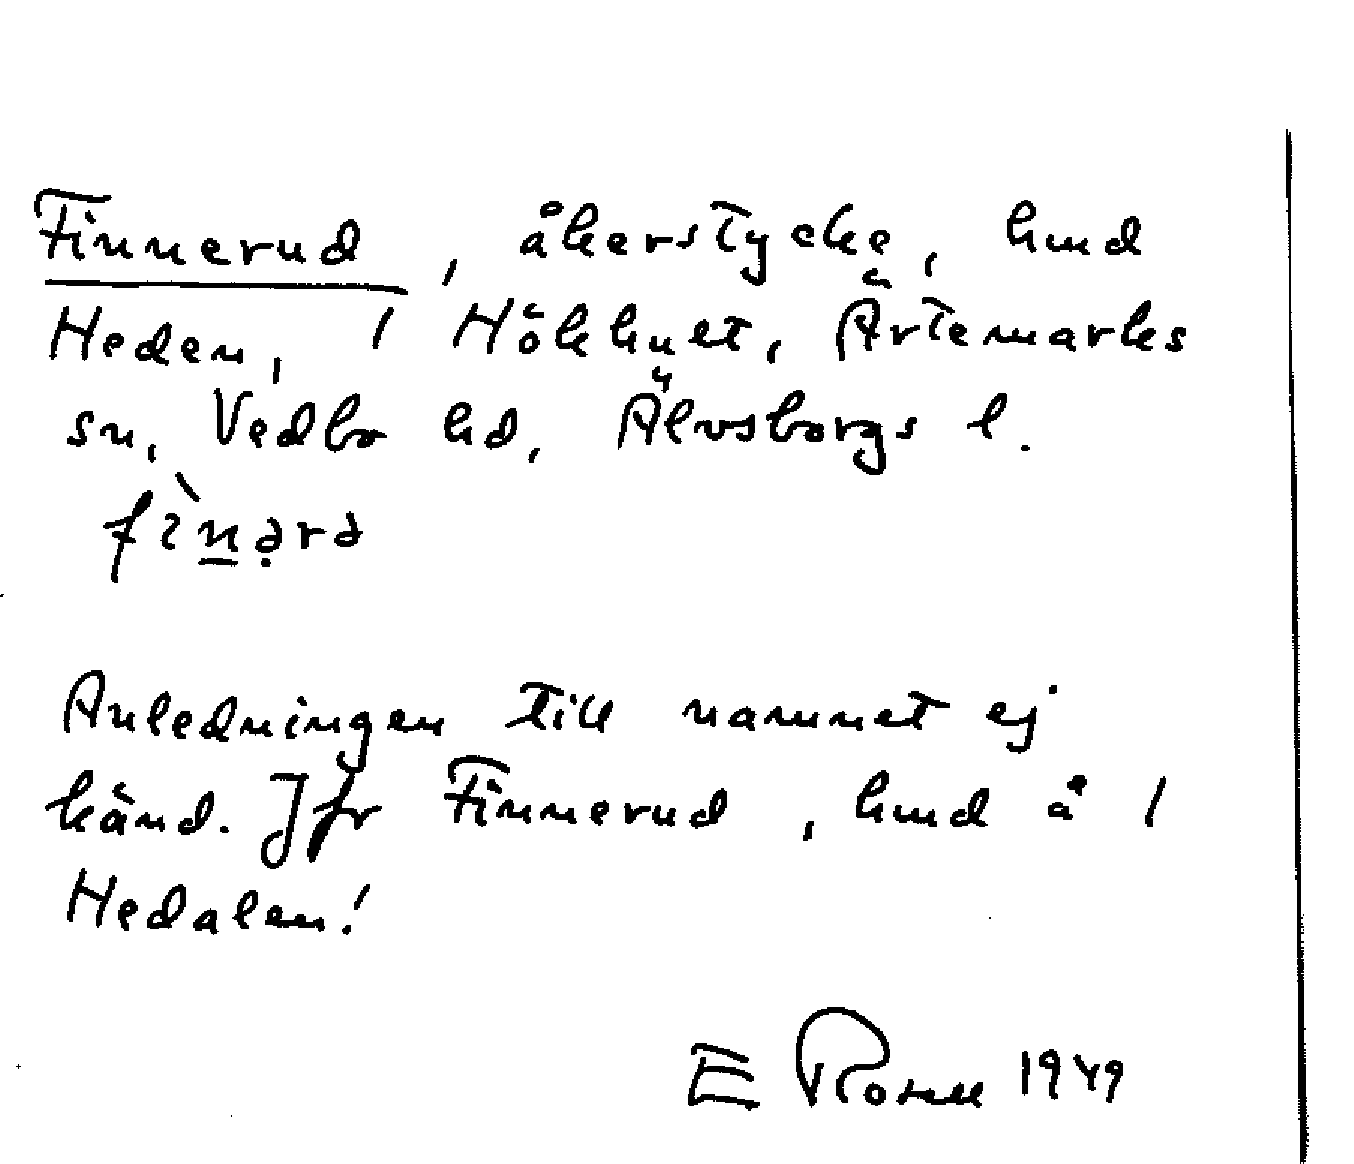 Finnerud, åkerstycke, hmd
Heden, 1 Hökhult, Ärtemarks
sn, Vedbo hd, Älvsborgs l.
Anledningen till namnet ej
känd. Jfr Finnerud, hmd å 1
Hedalen!
E 1949